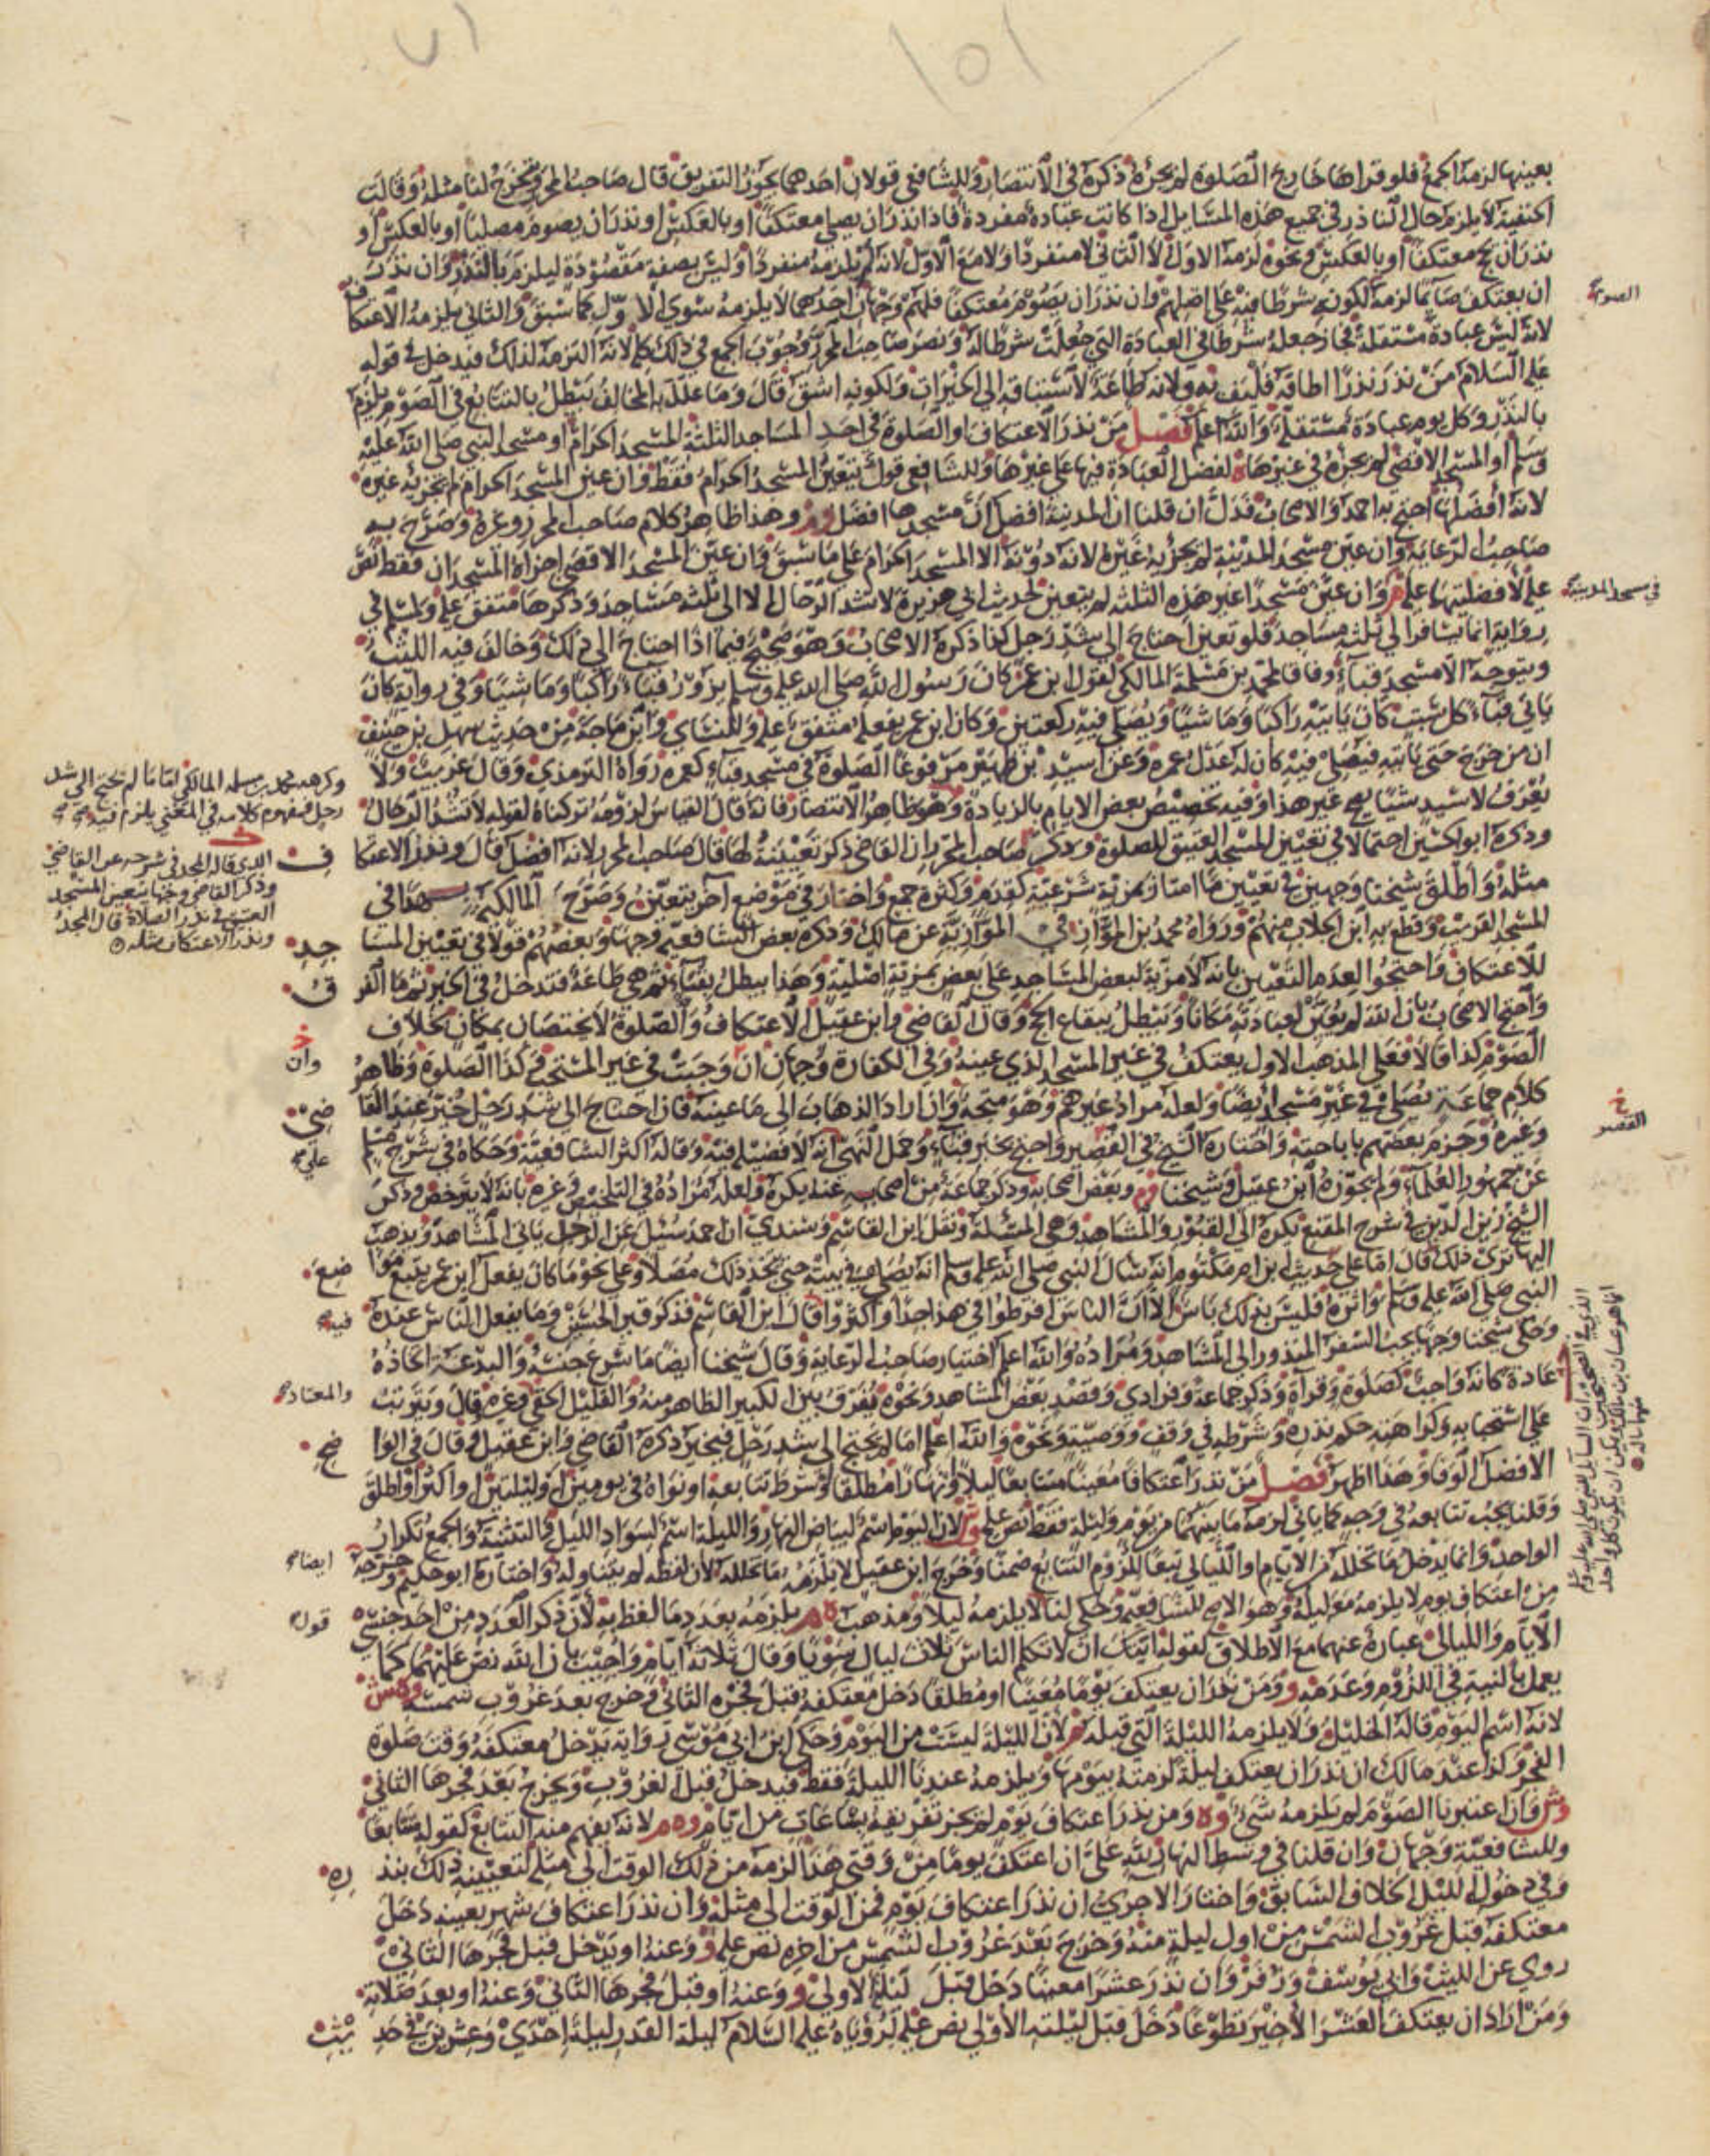 بعينها لزمه الجمع فلو قراها خارج الصلوة لم يجزه ذكره في الانتصار وللشافعي قولان احدهما يجوز التفريق قال صاحب المحرر ويتخرج لنا مثله وقالت
الحنفية لا يلزم حال الناذر في جميع هذه المسايل اذا كانت عبادة مفردة فاذا نذر ان يصلي معتكفا او بالعكس او نذر ان يصوم مصليا او بالعكس او
نذر ان يحج معتكفا او بالعكس ونحوه لزمه الاول لا الثاني لا منفردا ولا مع الاول لانه لم يلزمه منفردا وليس بصفة مقصودة ليلزم بالنذر وان نذر
ان يعتكف صايما لزمه لكونه شرطا فيه على اصلهم وان نذر ان يصوم معتكفا فلهم وجهان احدهما لا يلزمه سوى الاول كما سبق والثاني يلزمه الاعتكاف
لانه ليس عبادة مستقلة فجاز جعله شرطا في العبادة التي جعلت شرطا له ونصر صاحب المحرر وجوب الجمع في ذلك كله لانه التزمه لذلك فيدخل في قوله
عليه السلام من نذر نذرا اطاقه فليف به ولانه طاعة لاستباقه الى الخيرات ولكونه اشق قال وما علل به المخالف يبطل بالتتابع في الصوم يلزم
بالنذر وكل يوم عبادة مستقلة والله اعلم فصل من نذر الاعتكاف او الصلوة في احد المساجد الثلثة المسجد الحرام او مسجد النبي صلى الله عليه
وسلم او المسجد الاقصى لم يجزه في غيرها لفضل العبادة فيها على غيرها وللشافعي قول يتعين المسجد الحرام فقط وان عين المسجد الحرام لم يجزيه غيره
لانه افضلها احتج به احمد والاصحاب فدل ان قلنا ان المدينة افضل ان مسجدها افضل وهذا ظاهر كلام صاحب المحرر وغيره وصرح به
صاحب الرعاية وان عين مسجد المدينة لم يجزيه غيره لانه دونه الا المسجد الحرام على ما سبق وان عين المسجد الاقصى اجزاه المسجدان فقط نص
عليه لافضليتهما عليه وان عين مسجدا غير هذه الثلثه لم يتعين لحديث ابي هريرة لا تشد الرحال الا الى ثلثة مساجد وذكرها متفق عليه ولمسلم في
رواية انما يسافر الى ثلثه مساجد فلو تعين احتاج الى شد رحل كذا ذكره الاصحاب وهو صحيح فيما اذا احتاج الى ذلك وخالف فيه الليث
ويتوجه الا مسجد قباء وفاقا لمحمد بن مسلمة المالكي لقول ابن عمر كان رسول الله صلى الله عليه وسلم يزور قباء راكبا وماشيا وفي رواية كان
ياتي قباء كل سبت كان ياتيه راكبا وماشيا ويصلي فيه ركعتين وكان ابن عمر يفعله متفق عليه وللنساي وابن ماجة من حديث سهل بن حنيف
ان من خرج حتى ياتيه فيصلي فيه كان له عدل عمرة وعن اسيد بن ظهير مرفوعا الصلوة في مسجد قباء كعمرة رواه الترمذي وقال غريب ولا
يعرف لاسيد شيئا يصح غير هذا وفيه تخصيص بعض الايام بالزيادة وهو ظاهر الانتصار فانه قال القياس لزومه تركناه لقوله لا تشد الرحال
وذكره ابو الحسين احتمالا في تعيين المسجد العتيق للصلوة وذكر صاحب المحرر ان القاضي ذكر تعيينه لها قال صاحب المحرر لانه افضل قال ونذر الاعتكاف
مثله واطلق شيخنا وجهين في تعيين ما امتاز بمزية شرعية كقدم وكثرة جمع واختار في موضع آخر يتعين وصرح المالكية في
المسجد القريب وقطع به ابن الجلاب منهم ورواه محمد بن المواز في الموازية عن مالك وذكره بعض الشافعية وجها وبعضهم قولا في تعيين المساجد
للاعتكاف واحتجوا لعدم التعيين بانه لا مزية لبعض المساجد على بعض بمزية اصلية وهذا يبطل بقباء ثم هي طاعة فتدخل في الخبر ثم ما الفرق
واحتج الاصحاب بان الله لم يعين لعبادته مكانا ويبطل ببقاع الحج وقال القاضي وابن عقيل الاعتكاف والصلوة لا يختصان بمكان بخلاف
الصوم كذا قالا فعلى المذهب الاول يعتكف في غير المسجد الذي عينه وفي الكفارة وجهان ان وجبت في غير المستحب وكذا الصلوة وظاهر
كلام جماعة يصلي في غير مسجد ايضا ولعله مراد غيرهم وهو متجه وان اراد الذهاب الى ما عينه فان احتاج الى شد رحل خير عند القاضي
وغيره وجزم بعضهم باباحته واختاره الشيخ في القصر واحتج بخبر قباء وحمل النهي على انه لا فضيلة فيه وقاله اكثر الشافعية وحكاه في شرح مسلم
عن جمهور العلماء ولم يجوزه ابن عقيل وشيخنا وبعض اصحابه وذكر جماعة من اصحابه عنه يكره ولعله مراده في التلخيص وغيره بانه لا يترخص وذكر
الشيخ زين الدين في شرح المقنع يكره الى القبور والمشاهد وهي المسئلة ونقل ابن القاسم وسندي ان احمد سئل عن الرجل ياتي المشاهد ويذهب
اليها ترى ذلك قال اما على حديث ابن ام مكتوم انه سال النبي صلى الله عليه وسلم انه يصلي في بيته حتى يتخذ ذلك مصلا وعلى نحو ما كان يفعل ابن عمر يتبع مواضع
النبي صلى الله عليه وسلم واثره فليس بذلك باس الا ان الناس افرطوا في هذا جدا واكثروا قال ابن القاسم فذكر قبر الحسين وما يفعل الناس عنده
وحكى شيخنا وجها يجب السفر المنذور الى المشاهد ومراده والله اعلم اختيار صاحب الرعاية وقال شيخنا ايضا ما شرع جنسه والبدعة اتخاذه
عادة كانه واجب كصلوة وقرآة وذكر جماعة وفرادى وقصد بعض المشاهد ونحوه يفرق بين الكبير الظاهر منه والقليل الخفي وغيره قال ويترتب
على استحبابه وكراهته حكم نذره وشرطه في وقف ووصية ونحوه والله اعلم اما ما لم يحتج الى شد رحل فيخير ذكره القاضي وابن عقيل وقال في الواضح
الافضل الوفا وهذا اظهر فصل من نذر اعتكافا معينا متتابعا ليلا ونهارا مطلقا وشرط تتابعه او نواه في يومين او ليلتين او اكثر او اطلق
وقلنا يجب تتابعه في وجه كما ياتي لزمه ما بينهما من يوم وليلة فقط نص عليه وش لان اليوم اسم لبياض النهار والليلة اسم لسواد الليل والتثنية والجمع تكرار
الواحد وانما يدخل ما تخلله من الايام والليالي تبعا للزوم التتابع ضمنا وخرج ابن عقيل لا يلزمه ما تخلله لان لفظه لم يتناوله واختاره ابو حكيم وخرجه
من اعتكاف يوم لا يلزمه معه ليلة وهو الاصح للشافعية وحكى لنا لا يلزمه ليلا ومذهب ه م يلزمه بعدد ما لفظ به لان ذكر العدد من احد جنسي
الايام والليالي عبارة عنهما مع الاطلاق لقوله ايتك ان لا تكلم الناس ثلاث ليال سويا وقال ثلاثة ايام واجيب بان الله نص عليهما كما
يعمل بالنية في اللزوم وعدمه ومن نذر ان يعتكف يوما معينا او مطلقا دخل معتكفه قبل فجره الثاني وخرج بعد غروب شمسه وه ش
لانه اسم اليوم قاله الخليل ولا يلزمه الليلة التي قبله م لان الليلة ليست من اليوم وحكى ابن ابي موسى رواية يدخل معتكفه وقت صلوة
الفجر وكذا عند مالك ان نذر ان يعتكف ليلة لزمته بيومها ويلزمه عندنا الليلة فقط فيدخل قبل الغروب ويخرج بعد فجرها الثاني
وش وان اعتبرنا الصوم لم يلزمه شيء وه ومن نذر اعتكاف يوم لم يجز تفريقه بساعات من ايام وه م لانه يفهم منه التتابع كقوله متتابعا
وللشافعية وجهان وان قلنا في وسط النهار لله علي ان اعتكف يوما من وقتي هذا لزمه من ذلك الوقت الى مثله لتعيينه ذلك بنذره
وفي دخول الليل الخلاف السابق واختار الاجري ان نذر اعتكاف يوم فمن الوقت الى مثله وان نذر اعتكاف شهر بعينه دخل
معتكفه قبل غروب الشمس من اول ليلة منه وخرج بعد غروب الشمس من اخره نص عليه و وعنه او يدخل قبل فجرها الثاني
روي عن الليث وابي يوسف وزفر وان نذر عشرا معينا دخل قبل ليلته الاولى و وعنه او قبل فجرها الثاني وعنه او بعد صلاته
ومن اراد ان يعتكف العشر الاخير تطوعا دخل قبل ليلته الاولى نص عليه لرؤياه عليه السلام ليلة القدر ليلة احدى وعشرين في حديث
الصوم
في مسجد المدينة
وكرهه محمد بن مسلمه المالكي اما ما لم يحتج الى شد
رحل فمفهوم كلامه في المغني يلزم فيه
الذي قاله المجد في شرحه عن القاضي
وذكر القاضي وجها يتعين المسجد
العتيق في نذر الصلاة قال المجد
ونذر الاعتكاف مثله
وان
القصر
والمعتاد
ايضا
قوله